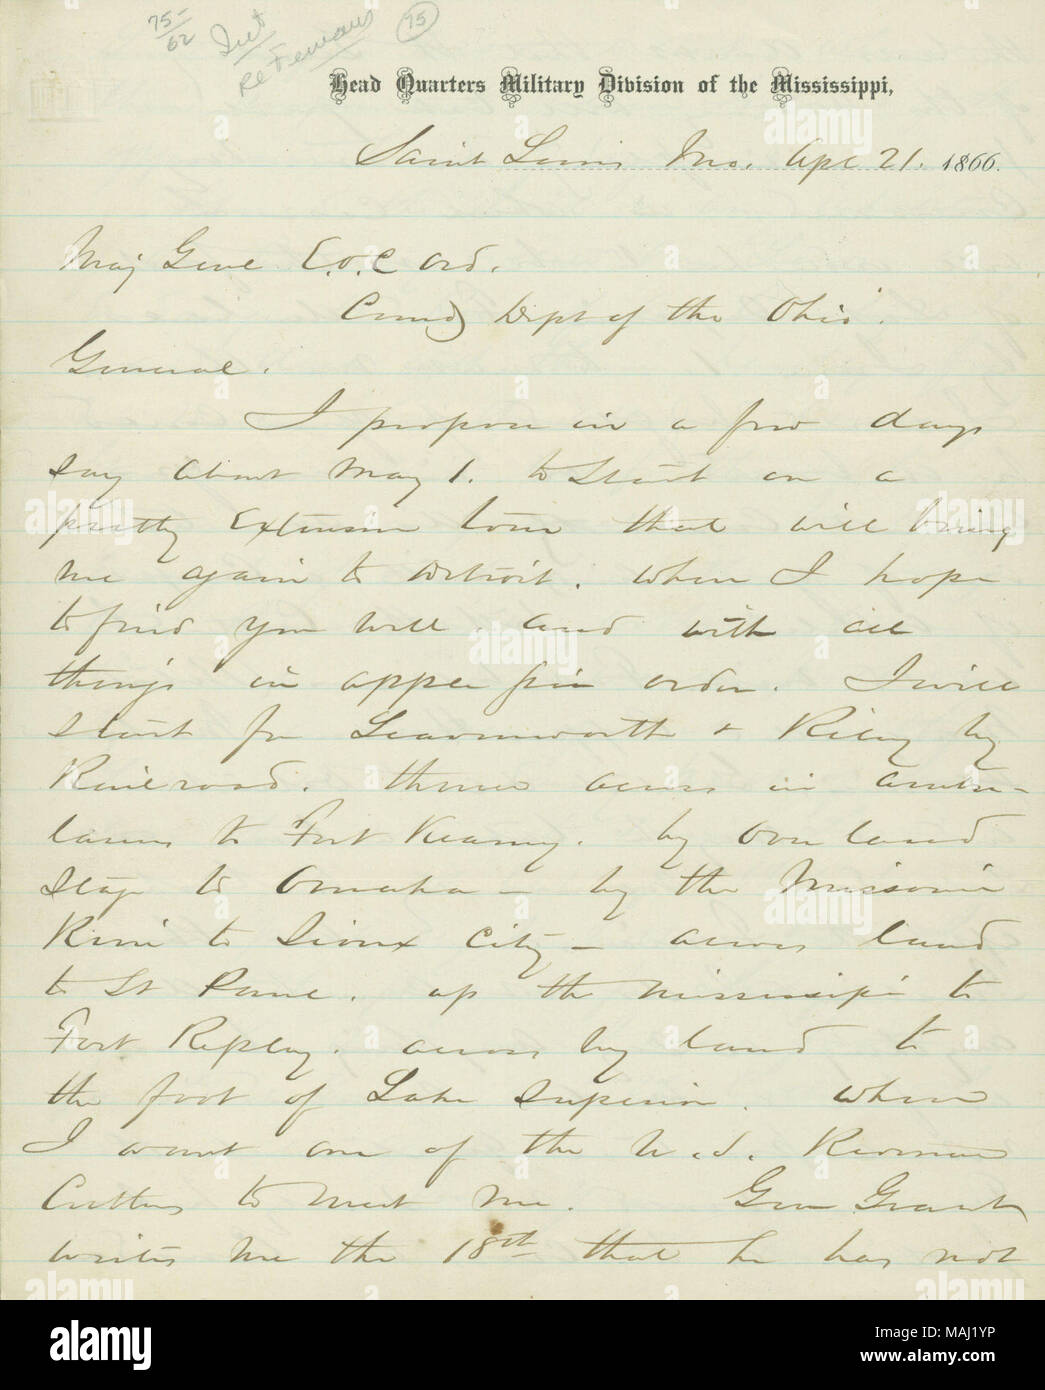 75-
62
Int
re Fenians
75
Head Quarters Military Division of the Mississippi,
Saint Louis Mo. Apl 21. 1866.
Maj Genl E.O.C Ord.
Comdg Dept of the Ohio.
General.
I propose in a few days
say about May 1. to start on a
pretty Extensive tour that will bring
me again to Detroit. when I hope
to find you well. and with all
things in apple pie order. I will
start for Leavenworth & Riley by
Railroad. thence across in ambu-
lances to Fort Kearny. by Overland
Stage to Omaha - by the Missouri
River to Sioux City - across land
to St Paul. up the Mississippi to
Fort Ripley. across by land to
the foot of Lake Superior. where
I want one of the U.S. Revenue
Cutters to meet me. Gen Grant
writes me the 18th that he has not
alamy
alamy
alamy
alamy
alamy
alamy
alamy
alamy
alamy
alamy
a
alamy
Image ID: MAJ1YP
www.alamy.com